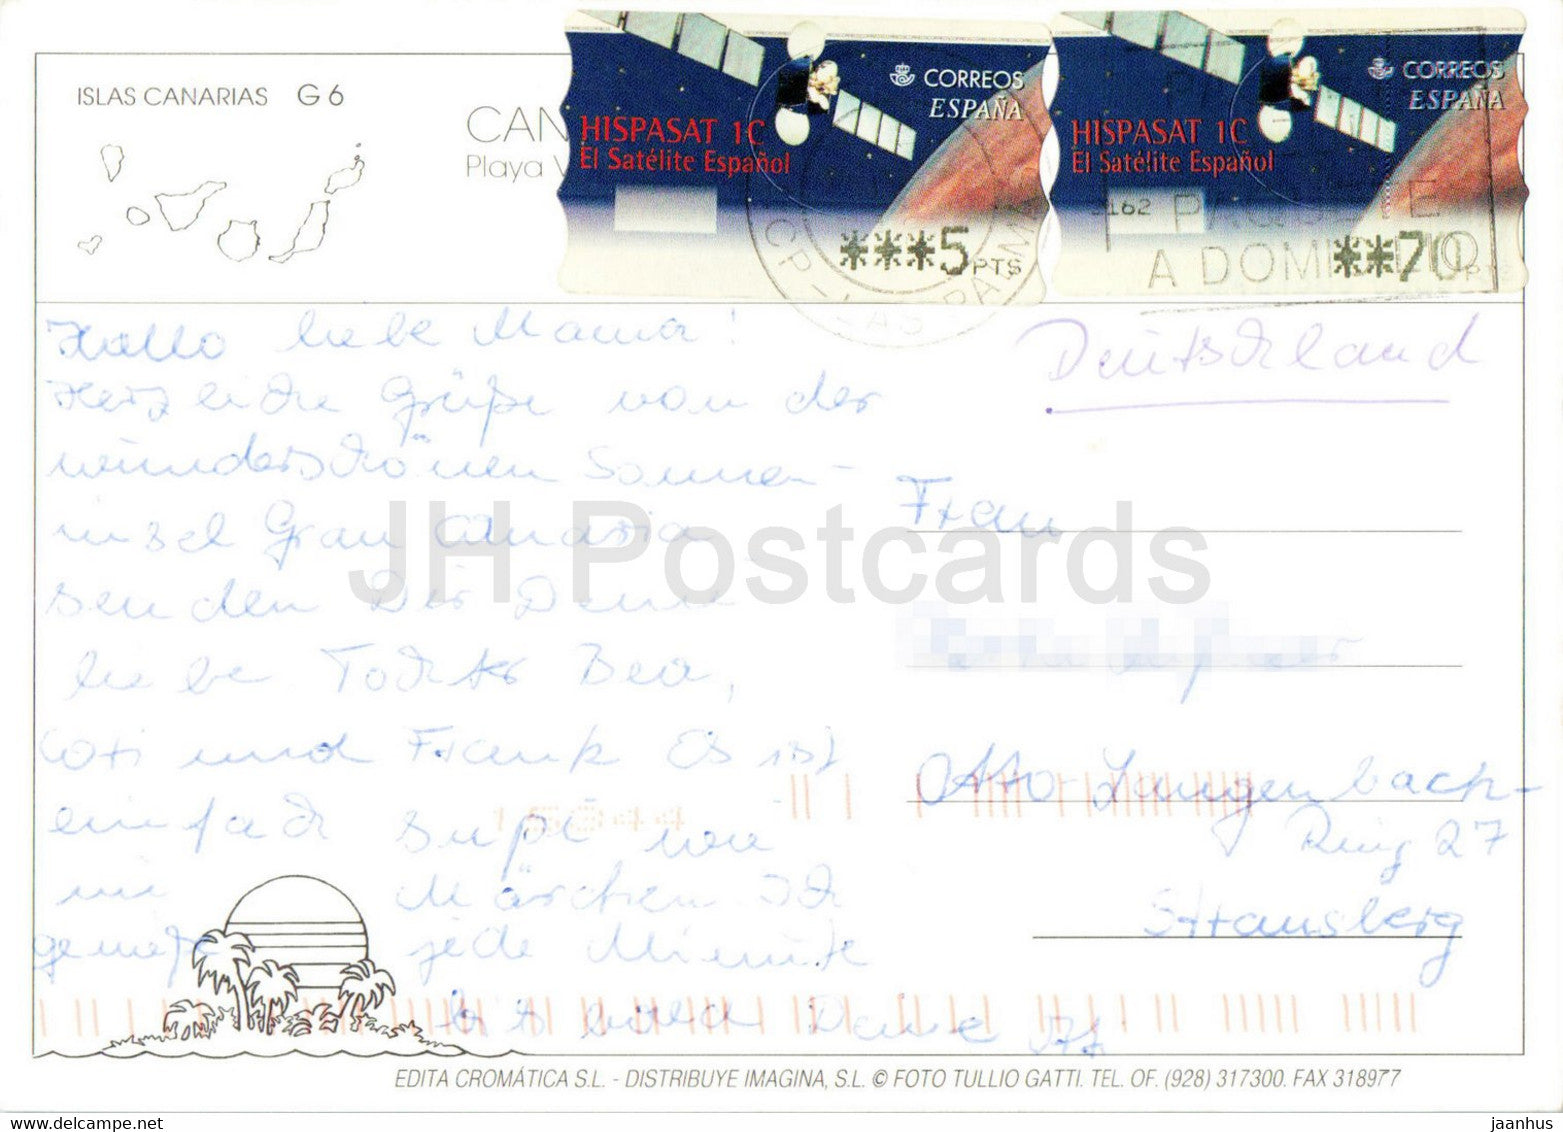 ISLAS CANARIAS G 6
CAN
Playa V
HISPASAT 1C
El Satélite Español
CORREOS
ESPAÑA
***5 PTS
HISPASAT 1C
El Satélite Español
CORREOS
ESPAÑA
**70 PTS
CP - LAS PALMA
A DOMICILIO
Hallo liebe Mama!
Herzliche Grüße von der
wunderschönen Sonnen-
insel Gran Canaria
senden Dir Deine
liebe Tochter Bea,
und Frank Es ist
einfach super wie
im Märchen Ich
genieße jede Minute
bis bald Deine
Deutschland
Frau
Otto-Langenbach-
Ring 27
Strausberg
JH Postcards
EDITA CROMÁTICA S.L. - DISTRIBUYE IMAGINA, S.L. © FOTO TULLIO GATTI. TEL. OF. (928) 317300. FAX 318977
jaanhus
www.hipstamp.com